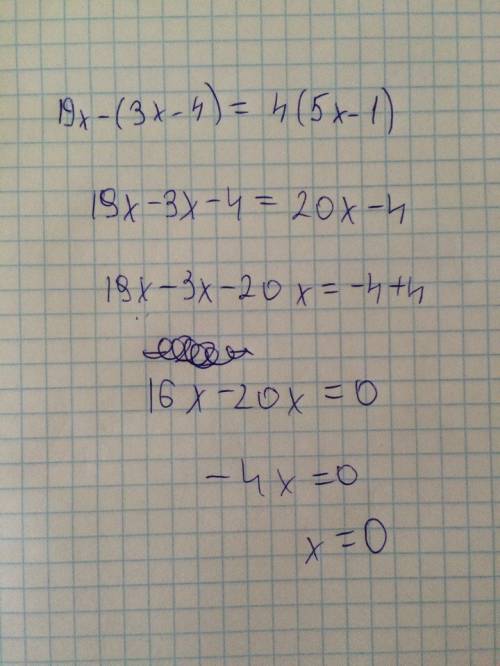 19x-(3x-4)=4(5x-1)
19x-3x-4=20x-4
19x-3x-20x=-4+4
16x-20x=0
-4x=0
x=0